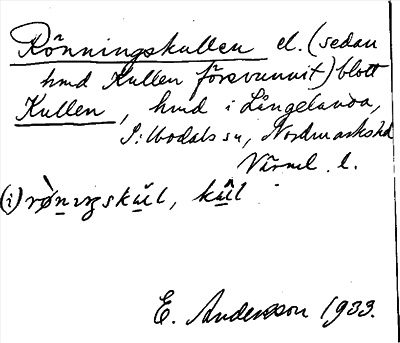 Rönningskullen el. (sedan
hmd Kullen försvunnit) blott
Kullen, hmd i Långelanda,
Silbodals sn, Nordmarks hd
Värml. l.
(i) rö̀niŋskul, kul
E. Andersson 1933.